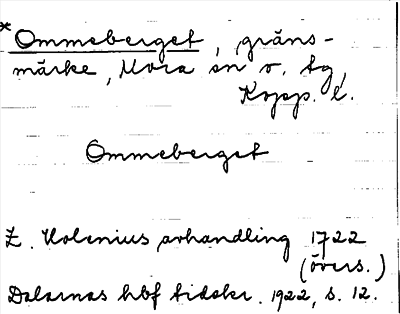 *Ommeberget, gräns-
märke, Mora sn o. tg,
Kopp. l.
Ommeberget
Z. Holenius avhandling 1722
(övers.)
Dalarnas hbf tidskr. 1922, s. 12.